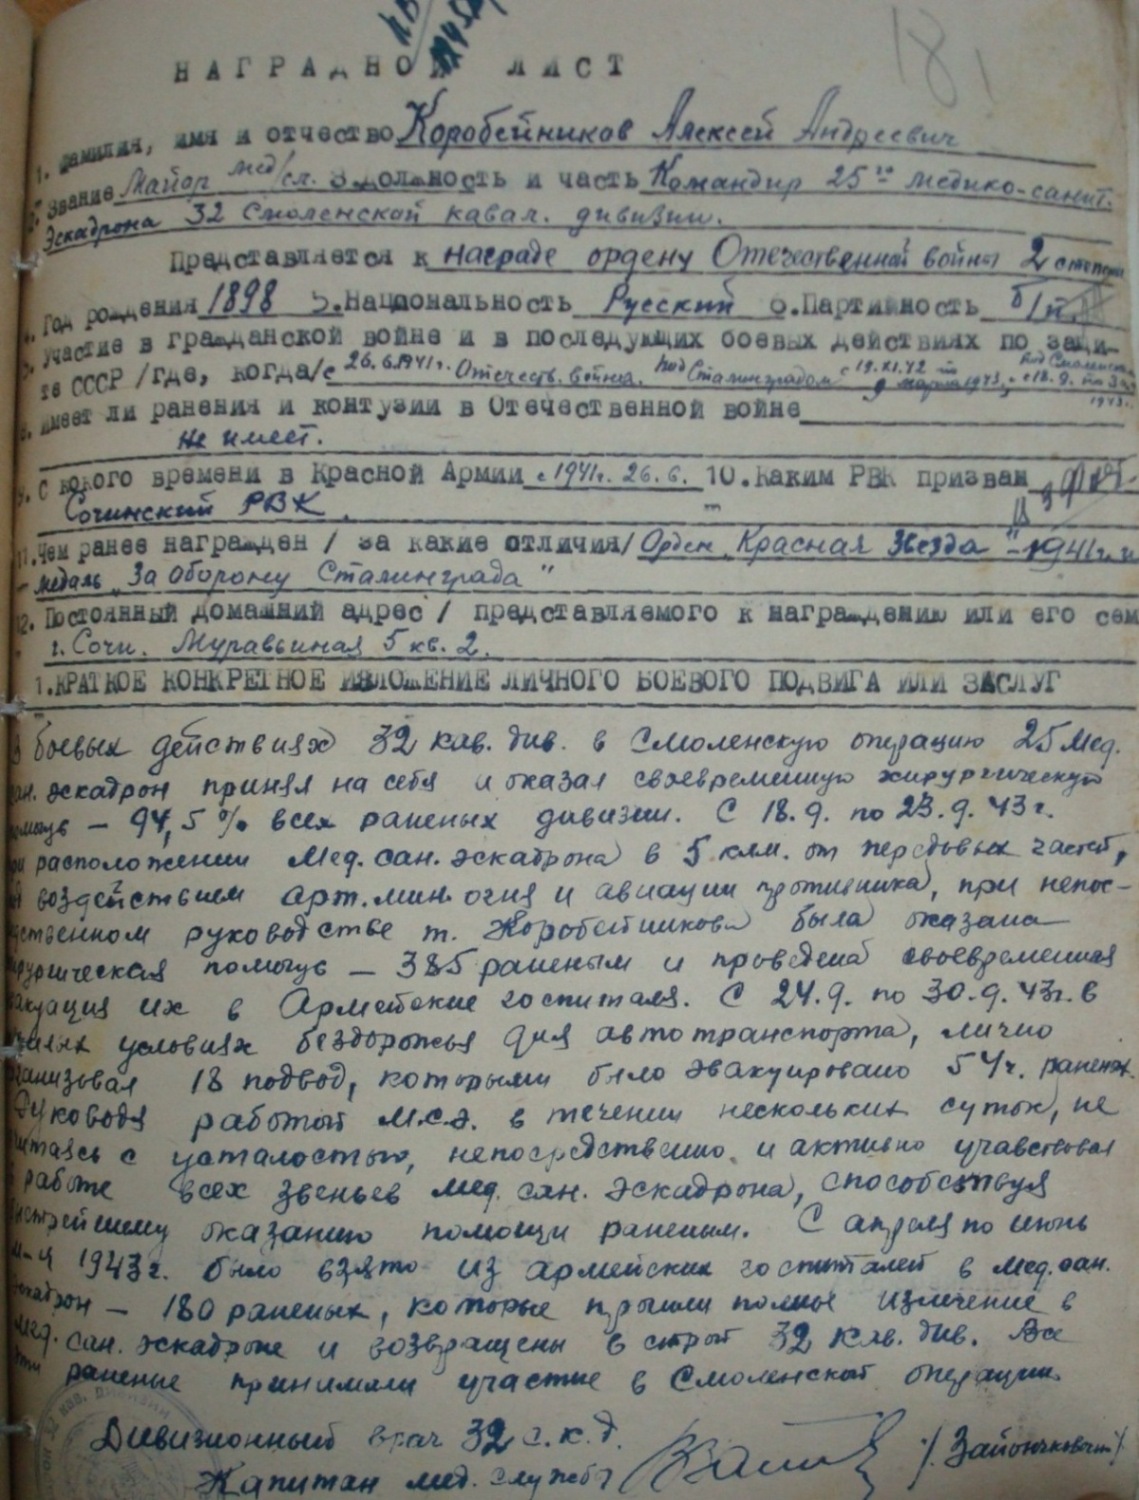 181
НАГРАДНОЙ ЛИСТ
1. Фамилия, имя и отчество Коробейников Алексей Андреевич
2. Звание Майор мед/сл. 3. Должность и часть Командир 25го медико-санит.
Эскадрона 32 Смоленской кавал. дивизии.
Представляется к награде ордену Отечественной войны 2 степени
4. Год рождения 1898 5. Национальность Русский 6. Партийность б/п.
7. Участие в гражданской войне и в последующих боевых действиях по защи-
те СССР /где, когда/ с 26.6.1941г. Отечеств. война. под Сталинградом с 19.XI.42 по 9 марта 1943, под Смоленск. с 18.9. по 1943г.
8. имеет ли ранения и контузии в Отечественной войне
Не имеет.
9. С кокого времени в Красной Армии с 1941г. 26.6. 10. Каким РВК призван
Сочинский РВК
11. Чем ранее награжден / за какие отличия/ Орден „Красная Звезда" - 1941г. и
медаль „За оборону Сталинграда"
12. Постоянный домашний адрес / представляемого к награждению или его сем
г. Сочи. Муравьиная 5 кв. 2.
1. КРАТКОЕ КОНКРЕТНОЕ ИЗЛОЖЕНИЕ ЛИЧНОГО БОЕВОГО ПОДВИГА ИЛИ ЗАСЛУГ
В боевых действиях 32 кав. див. в Смоленскую операцию 25 Мед.
сан. эскадрон принял на себя и оказал своевременную хирургическую
помощь – 94,5% всех раненых дивизии. С 18.9. по 23.9.43г.
при расположении Мед. сан. эскадрона в 5 клм. от передовых частей,
воздействием арт. мин. огня и авиации противника, при непос-
редственном руководстве т. Коробейникова была оказана
хирургическая помощь – 385 раненым и проведена своевременная
эвакуация их в Армейские госпиталя. С 24.9. по 30.9.43г. в
условиях бездорожья для автотранспорта, лично
организовал 18 подвод, которыми было эвакуировано 54ч. ранен.
Руководя работой М.С.Э. в течении нескольких суток, не
считаясь с усталостью, непосредственно и активно учавствовал
в работе всех звеньев мед. сан. эскадрона, способствуя
быстрейшему оказанию помощи раненым. С апреля по июнь
м-ц 1943г. было взято из армейских госпиталей в мед. сан.
эскадрон – 180 раненых, которые прошли полное излечение в
мед. сан. эскадроне и возвращены в строй 32 кав. див. Все
эти раненые принимали участие в Смоленской операции.
Дивизионный врач 32 с.к.д.
Капитан мед. службы /Зайончковский/